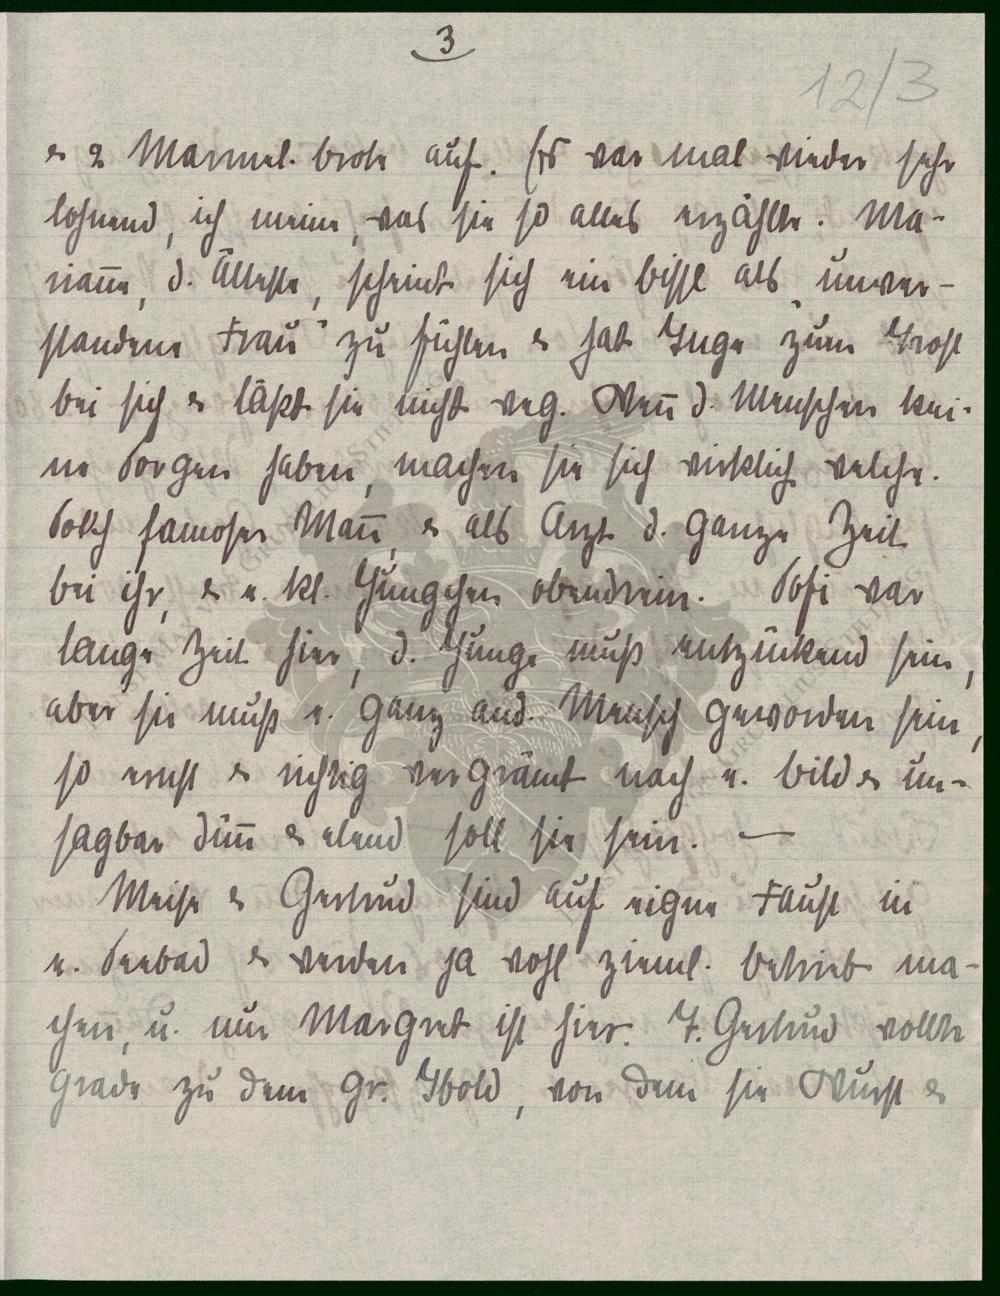 3
12/3
& 2 Marmel. brote auf. Es war mal wieder sehr
lohnend, ich meine, was sie so alles erzählte. Ma-
rianne, d. Älteste, scheint sich ein bissl als „unver-
standene Frau" zu fühlen & hat Inge zum Trost
bei sich & läßt sie nicht weg. Wenn d. Menschen kei-
ne Sorgen haben, machen sie sich wirklich welche.
Solch famoser Mann, & als Arzt d. ganze Zeit
bei ihr, & e. kl. Jungchen obendrein. Sofi war
lange Zeit hier, d. Junge muß entzückend sein,
aber sie muß e. ganz and. Mensch geworden sein,
so ernst & richtig vergrämt nach e. Bild & un-
sagbar dünn & elend soll sie sein. —
Meise & Gertrud sind auf eigne Faust in
e. Seebad & werden ja wohl zieml. Betrieb ma-
chen, u. nur Margret ist hier. T. Gertrud wollte
grade zu dem Gr. Ibold, von dem sie Wurst &